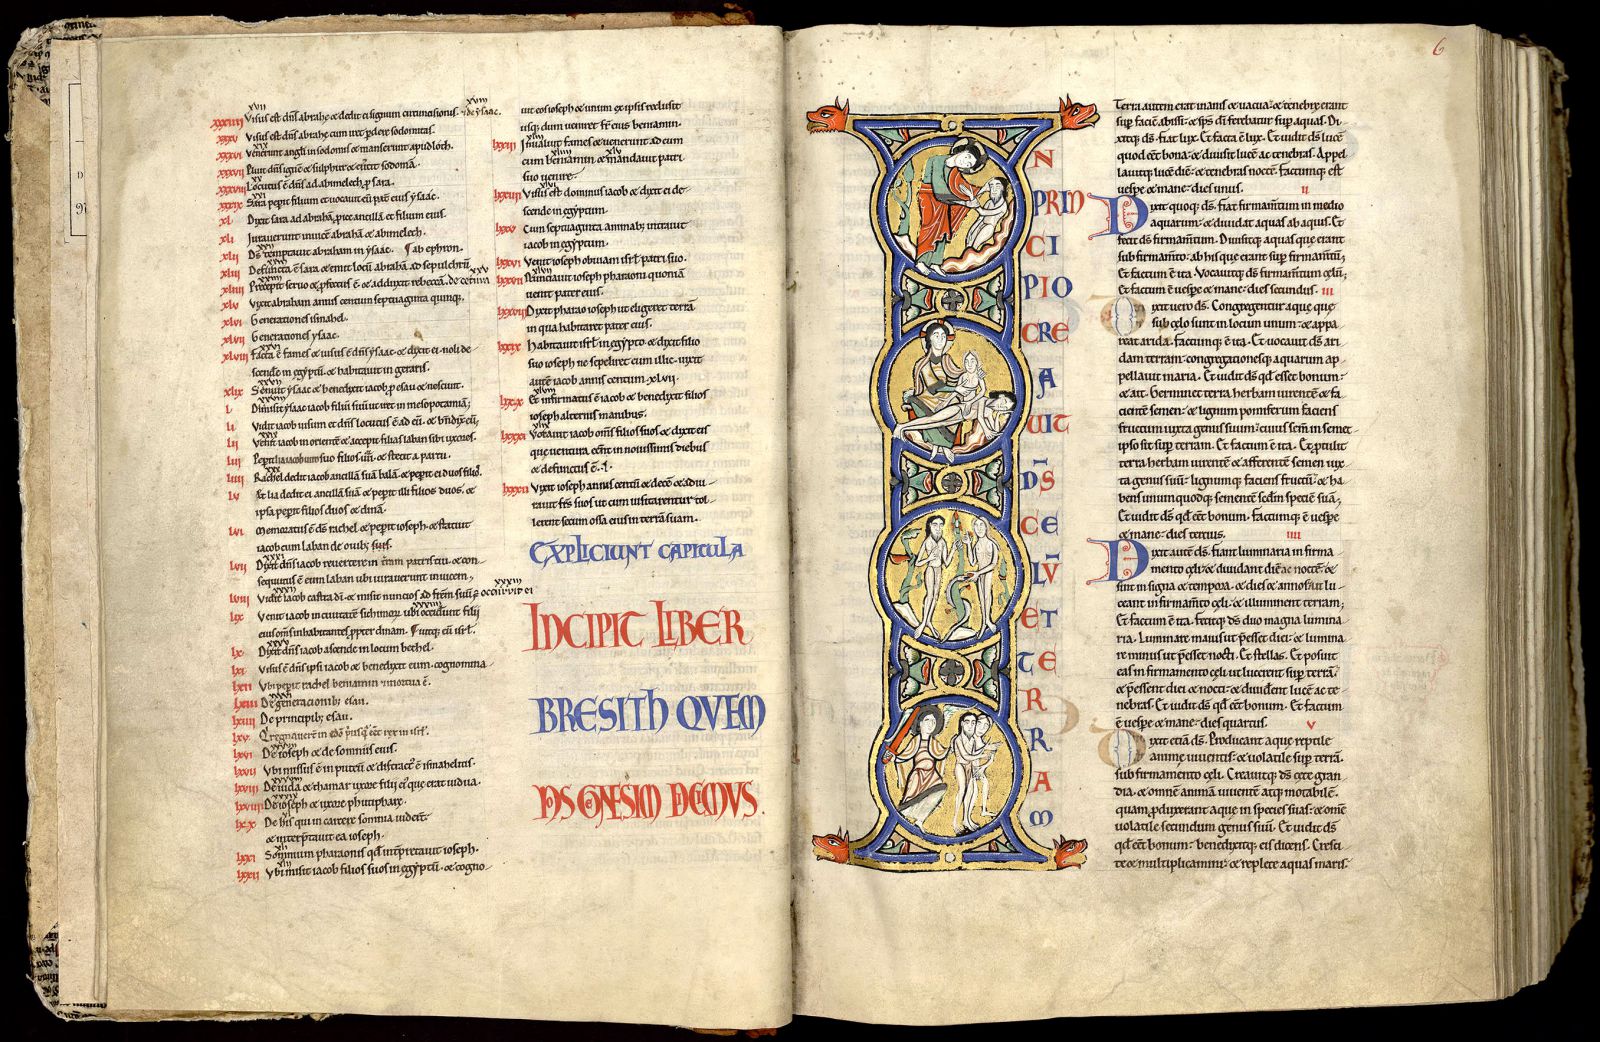 xvii xviii
xxxiiii Visus est dñs abrahę & dedit ei signum circumcisionis. & de ysaac.
xxxv Visus est dñs abrahę cum iret perdere sodomitas.
xix
xxxvi Venerunt angli in sodomis & manserunt apud loth.
xxxvii Pluit dñs ignē & sulphur & euertit sodomā.
xx
xxxviii Locutus ē dñs ad abimelech p sara.
xxxix Sara peperit filium & uocauit eū pat eius ysaac.
xl Dixit sara ad abrahā, eice ancillā & filium eius.
xli Iurauerunt inuicē abrahā & abimelech.
xlii Dš temptauit abraham in ysaac. ab ephron.
xliii Defuncta ē sara & emit locū abrahā ad sepulchrū.
xliiii Precepit seruo & profectus ē & adduxit rebeccā. de cetura
xlv Vixit abraham annis centum septuaginta quinq;.
xlvi Generationes ismahel.
xlvii Generationes ysaac.
xxvi
xlviii Facta ē fames & uisus ē dñs ysaac & dixit ei noli de-
scende in egyptū & habitauit in geraris.
xxvii
xlix Senuit ysaac & benedixit iacob p esau & nesciuit.
xxviii
l Dimisit ysaac iacob filiū suū ut iret in mesopotamiā;
li Vidit iacob uisum & dñs locutus ē ad eū. & bndixit eū;
xxix
lii Venit iacob in oriente & accepit filias laban sibi uxores.
liii Peperit lia iacob suo filios iiii. & stetit a partu.
xxx
liiii Rachel dedit iacob ancillā suā balā & peperit ei duos filios.
lv At lia dedit ei ancillā suā & peperit illi filios duos. &
ipsa peperit filios duos & dinā.
lvi Memoratus ē dš rachel & peperit ioseph & statuit
iacob cum laban de ouib; suis.
xxxi
lvii Dixit dñs iacob reuertere in terram patris tui & con-
sequutus ē eum laban ubi iurauerunt inuicem.
xxxii xxxiii
lviii Vidit iacob castra dī & misit nuncios ad frēm suū & occurrit ei
xxxiiii
lix Venit iacob in ciuitatē sichimorum ubi occidunt filii
eius omēs inhabitantes propter dinam.
xxxv
lx Dixit dñs iacob ascende in locum bethel.
lxi Visus ē dñs ipsi iacob & benedixit eum. cognomina-
lxii Vbi peperit rachel beniamin & mortua ē.
lxiii De generacionib; esau.
lxiiii De principib; esau.
lxv Qui regnauerunt in edom
xxxvii
lxvi De ioseph & de somniis eius.
lxvii Vbi missus ē in puteū & distractus ē ismahelitis.
xxxviii
lxviii De iuda & thamar uxore filii eius que erat uidua.
xxxix
lxviiii De ioseph & uxore phutipharis.
xl
lxx De his qui in carcere somnia uiderunt
& interpretauit ea ioseph.
lxxi Somnium pharaonis quod interpretauit ioseph.
xlii
lxxii Vbi misit iacob filios suos in egyptū. & cogno-
uit eos ioseph & unum ex ipsis reclusit
usq; dum ueniret fr eius beniamin.
lxxiii Inualuit fames & uenerunt ad eum
cum beniamin & mandauit patri
suo uenire.
xlvi
lxxiiii Visus est dominus iacob & dixit ei de-
scende in egyptum.
lxxv Cum septuaginta animab; intrauit
iacob in egyptum.
lxxvi Venit ioseph obuiam isrl patri suo.
xlvii
lxxvii Nunciauit ioseph pharaoni quoniā
uenit pater eius.
lxxviii Dixit pharao ioseph ut eligeret terrā
in qua habitaret pater eius.
lxxix Habitauit isrl in egypto & dixit filio
suo ioseph ne sepeliret eum illic. uixit
autē iacob annis centum xlvii.
xlviii
lxxx Et infirmatus ē iacob & benedixit filios
ioseph alternis manibus.
xlix
lxxxi Vocauit iacob omēs filios suos & dixit eis
que uentura erunt in nouissimis diebus
& defunctus ē.
lxxxii Vixit ioseph annis centū & decē & adiu-
rauit frēs suos ut cum uisitarentur tol-
lerent secum ossa eius in terrā suam.
EXPLICIUNT CAPITULA
INCIPIT LIBER
BRESITH QVEM
NOS GENESIM DICIMVS.
6
IN
PRIN
CI
PIO
CRE
A
UIT
DS
CE
LV
ET
TE
R
R
A
M
Terra autem erat inanis & uacua: & tenebre erant
sup faciē abissi: & spš dī ferebatur sup aquas. Di-
xitq; dš. fiat lux. Et facta ē lux. Et uidit dš lucē
quod eēt bona: & diuisit lucē ac tenebras. Appel-
lauitq; lucē diē: & tenebras noctē. Factumq; est
uespe & mane: dies unus. ii
Dixit quoq; dš. Fiat firmamtum in medio
aquarum: & diuidat aquas ab aquis. Et
fecit dš firmamtum. Diuisitq; aquas que erant
sub firmamto: ab his que erant sup firmamtū;
Et factum ē ita. Vocauitq; dš firmamtum celū;
Et factum ē uespe & mane: dies secundus. iii
Dixit uero dš. Congregentur aque que
sub celo sunt in locum unum: & appa-
reat arida. factumq; ē ita. Et uocauit dš ari-
dam terram: congregationesq; aquarum ap-
pellauit maria. Et uidit dš qd esset bonum:
& ait. Germinet terra herbam uirentē & fa-
cientē semen: & lignum pomiferum faciens
fructum iuxta genus suum: cuius semen in semet-
ipso sit sup terram. Et factum ē ita. Et protulit
terra herbam uirentē & afferentē semen iux-
ta genus suū: lignumq; faciens fructū: & ha-
bens unumquodq; sementē scdm speciē suā;
Et uidit dš qd eēt bonum. Factumq; ē uespe
& mane: dies tercius. iiii
Dixit autē dš. fiant luminaria in firma-
mento celi: & diuidant diē ac noctē: &
sint in signa & tempora. & dies & annos: ut lu-
ceant in firmamto celi: & illuminent terram;
Et factum ē ita. fecitq; dš duo magna lumina-
ria. Luminare maius ut pesset diei: & lumina-
re minus ut pesset nocti. Et stellas. Et posuit
eas in firmamto celi ut lucerent sup terrā:
& pessent diei & nocti: & diuiderent lucē ac te-
nebras. Et uidit dš qd eēt bonum. Et factum
ē uespe & mane: dies quartus. v
Dixit etiā dš. Producant aque reptile
animę uiuentis: & uolatile sup terrā:
sub firmamento celi. Creauitq; dš cete gran-
dia. & omnē animā uiuentē atq; motabilē.
quam produxerant aque in species suas: & omē
uolatile secundum genus suū. Et uidit dš
qd eēt bonum: benedixitq; eis dicens. Cresci-
te & multiplicamini: & replete aquas maris-